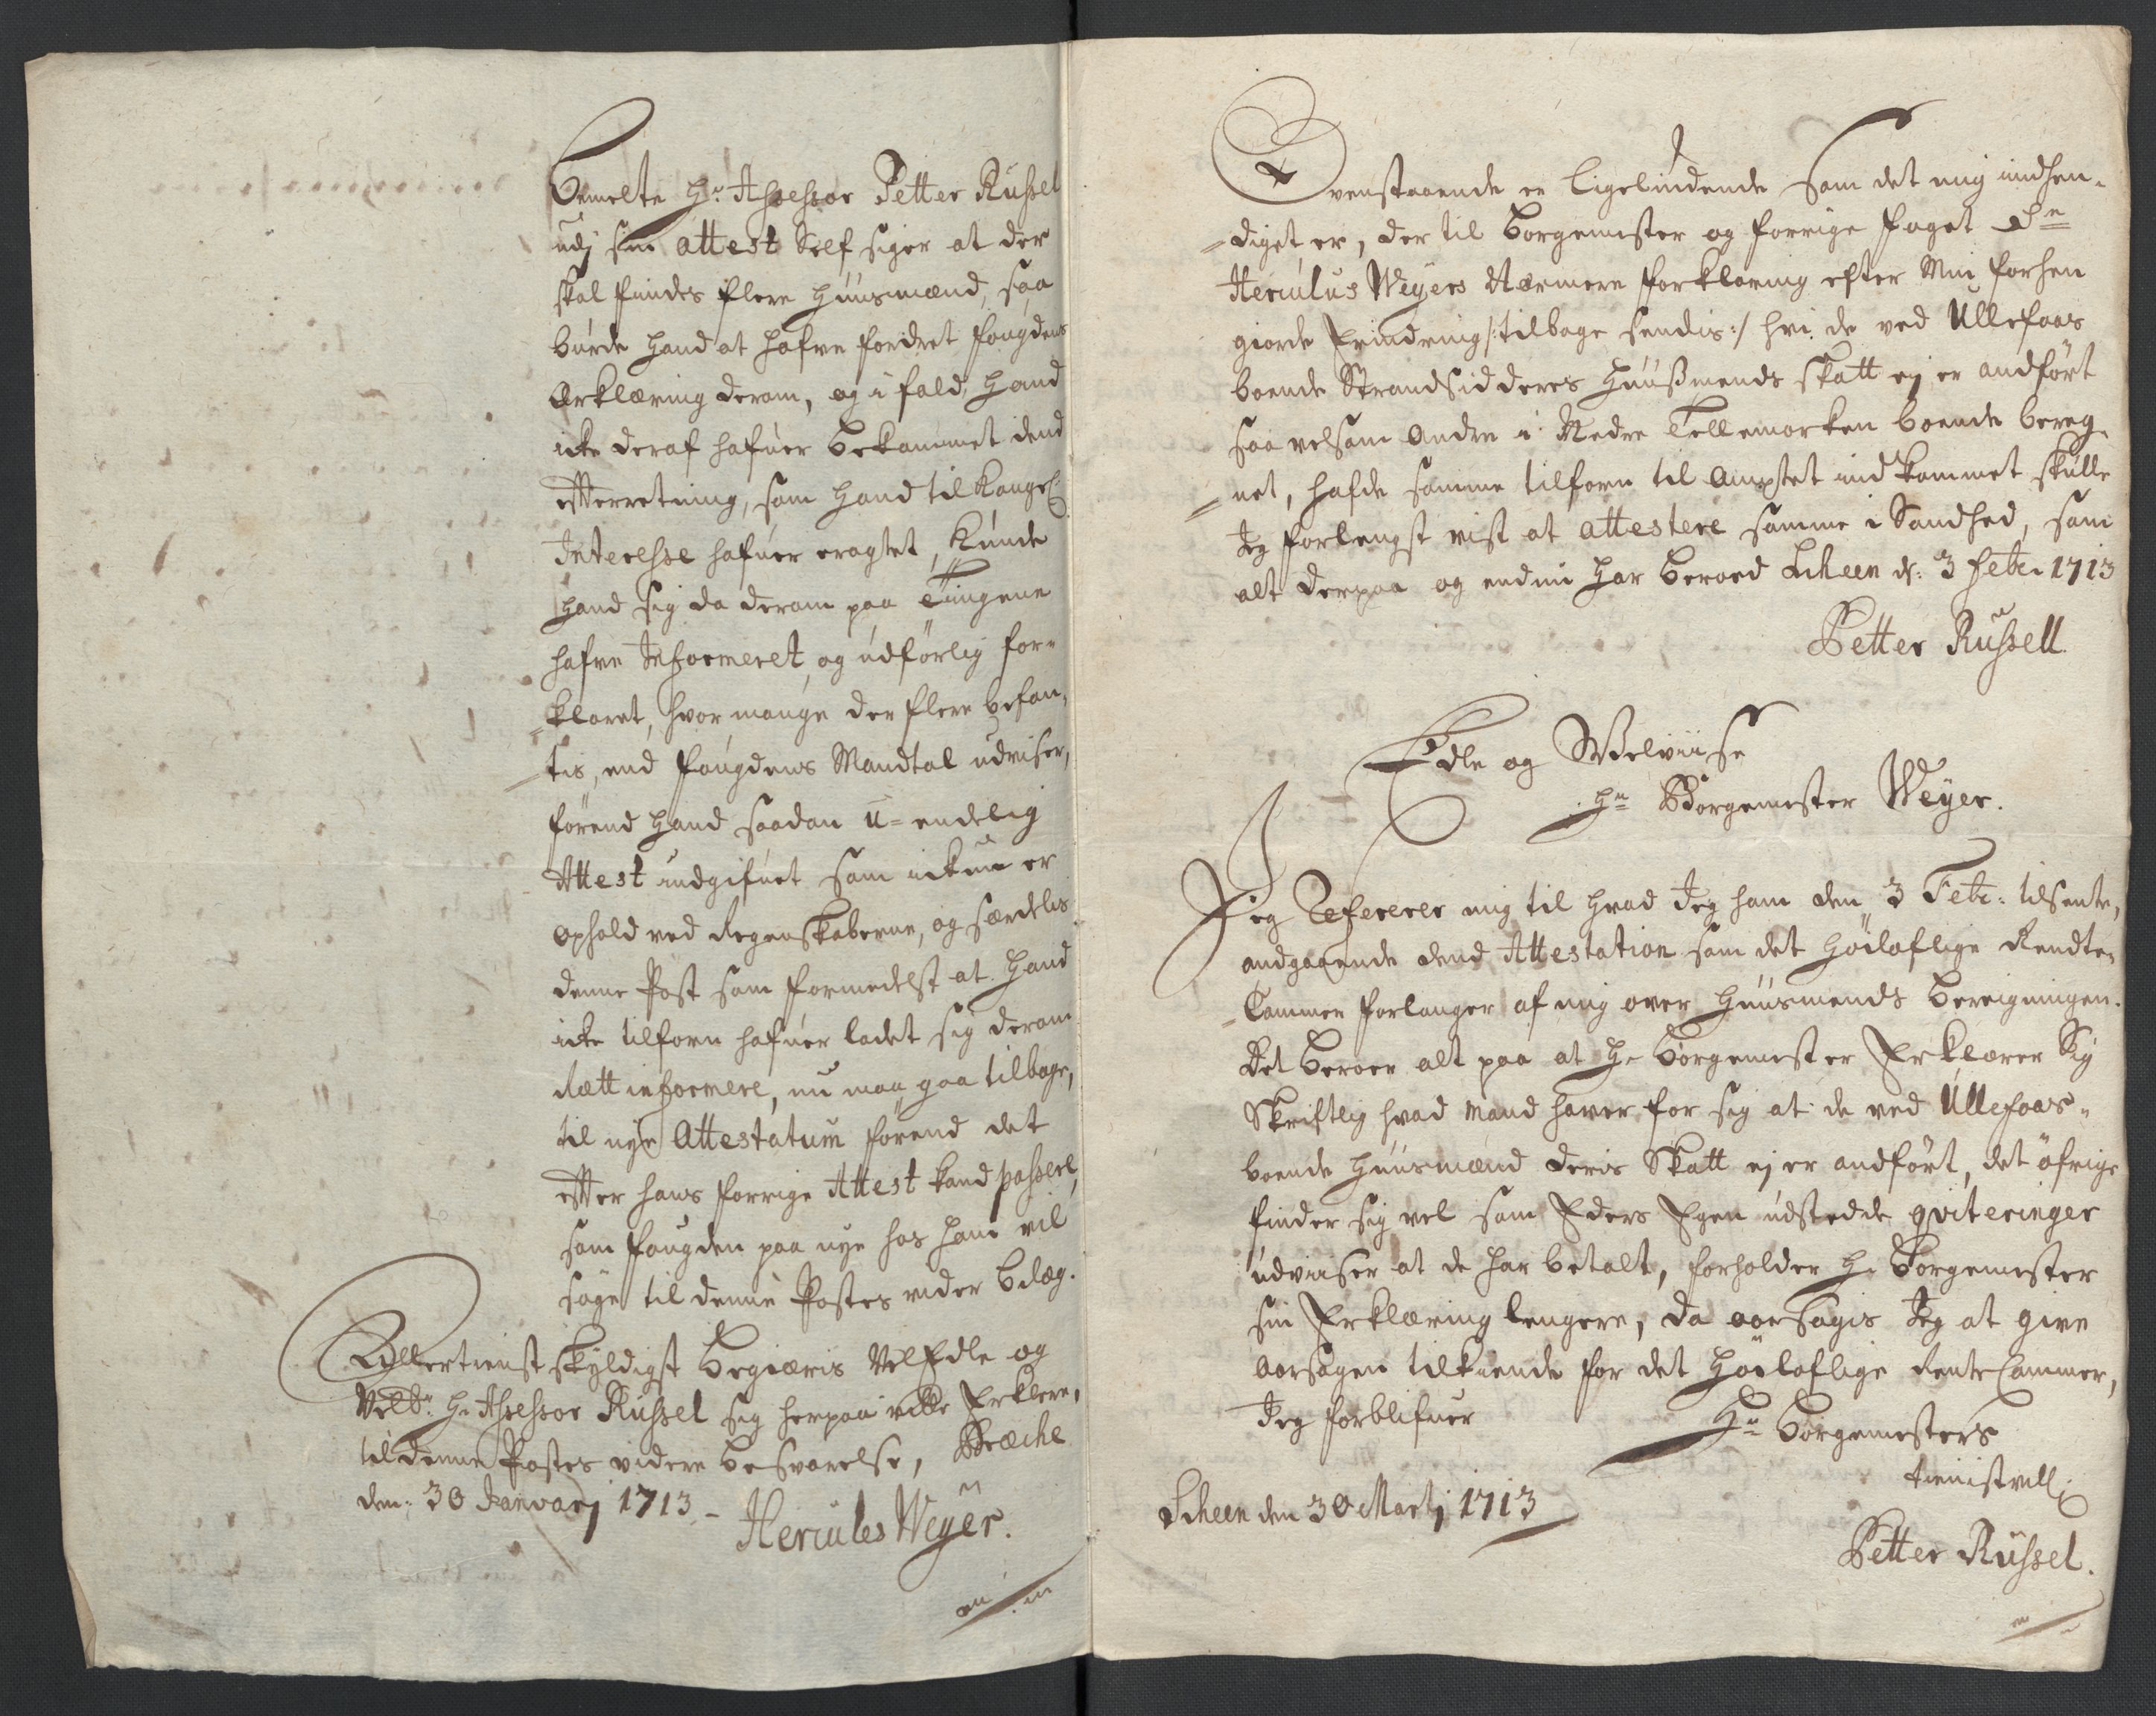 Bemelte Hr: Assessor Petter Russel
udj sin attest Self siger at der
skal findes flere Huusmænd, saa
burde Hand at hafve fordret fougdens
Erklæring derom, og i fald Hand
icke deraf hafuer bekommet dend
efterretning, som Hand til Kongel:
Interesse hafuer eragtet, Kunde
Hand sig da derom paa Tingene
hafve Informeret, og udførlig for-
klaret, hvor mange der flere befan-
tis, end fougdens Mandtal udviser,
førend Hand saadan u-endelig
Attest udgifuet som ickun er
ophold ved Regenskaberne, og særdelis
denne Post som formedelst at Hand
icke tilforn hafuer ladet sig derom
Rætt informere, nu maa gaa tilbage,
til nye Attestatum førend det
efter hans forrige Attest kand passere,
som fougden paa nye hos ham vil
søge til denne Postes vider belæg.
Allertienstskyldigst begiæris VelEdle og
Velbr: Hr Assessor Russel sig herpaa ville Erklere,
til denne Postes videre besvarelse, Bræche
den: 30 Januarj 1713 -
Hercules Weyer.
Ovenstaaende er ligelindende som det mig indhen-
diget er, der til borgemester og forrige foget Hr
Herculus Weyers Nærmere forklaring efter Min forhen
giorde Erindring /: tilbage sendis :/ hvi de ved Ullefoss
boende Strandsidderes Huusmends skatt ej er andført
saavelsom Andre i Nedre Tellemarken boende bereg-
net, hafde samme tilforn til Amptet indkommet skulle
Jeg forlengst vist at attestere samme i Sandhed, som
alt derpaa og endnu har beroed Scheen d: 3 Febr: 1713
Petter Russell
Edle og Welviise
Hr Borgemester Weyer.
Jeg Refererer mig til hvad Jeg ham den 3 Febr: tilsente,
andgaaende dend Attestation som det Höiloflige Rendte-
Cammer forlanger af mig over Huusmends bereigningen.
Det beroer alt paa at Hr borgemester Erklærer Sig
Skriftlig hvad mand haver for sig at de ved Ullefoss-
boende Huusmænd deris Skatt ej er andført, det öfrige
finder sig vel som Eders Egen udstedde qviteringer
udviiser at de har betalt, forholder Hr Borgemester
sin Erklæring lengere, da aarsagis Jeg at give
Aarsagen tilkiende for det Höiloflige RenteCammer,
Jeg forblifuer
Hr Borgemesters
tienistvill:
Scheen den 30 Martj 1713
Petter Russel.